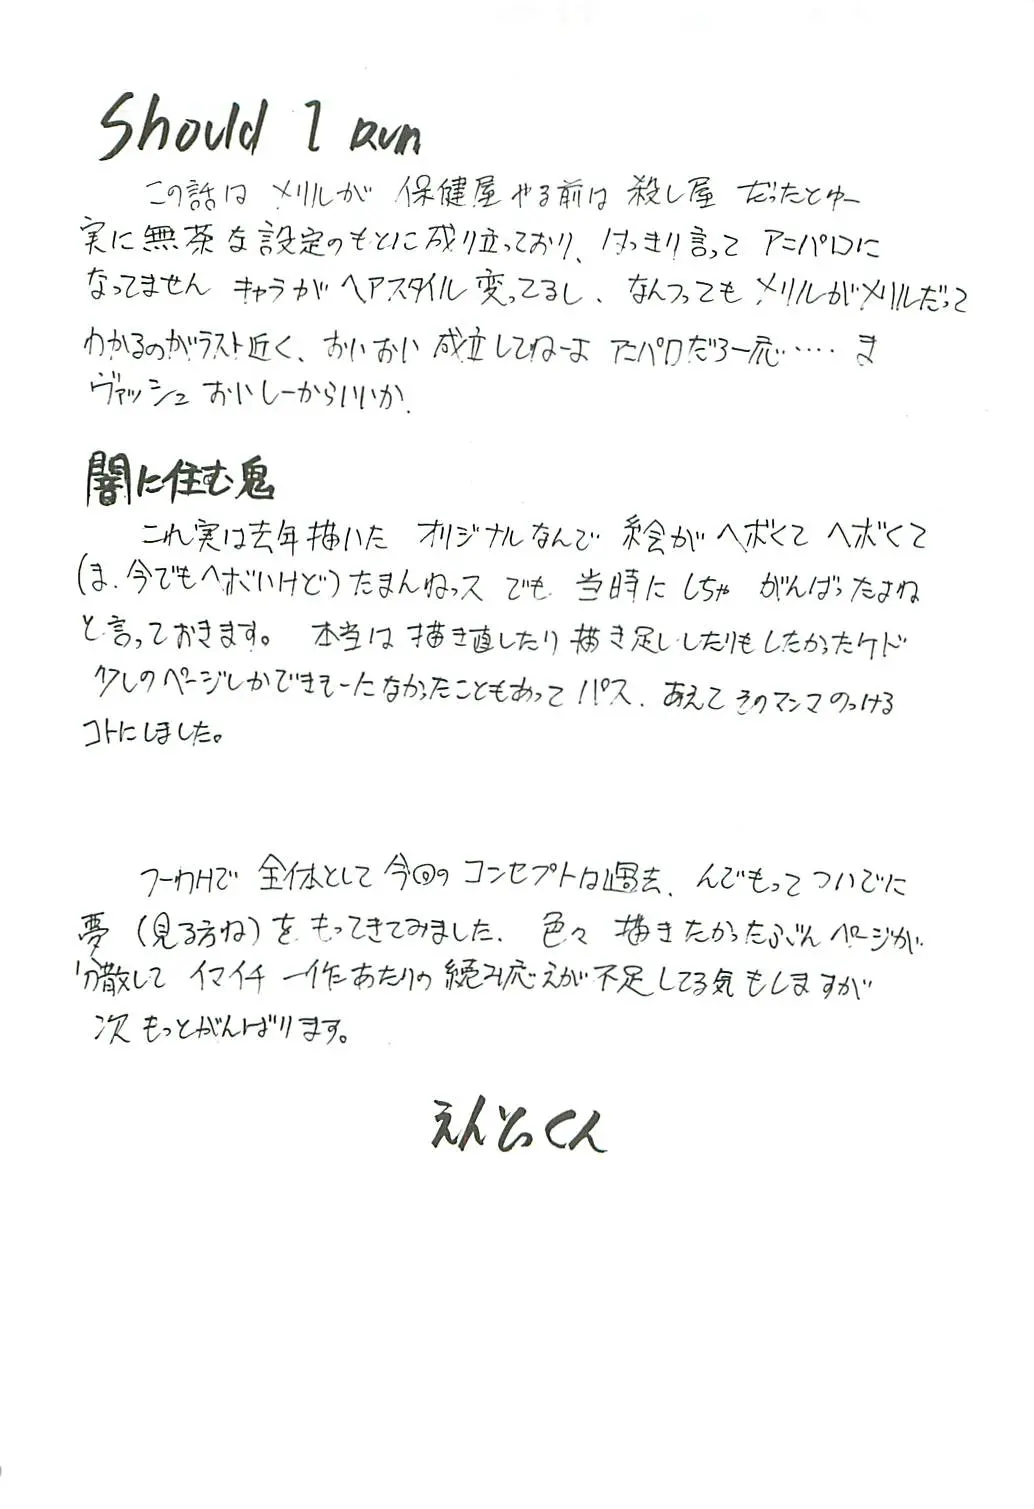 Should I Run
この話は メリルが 保健屋 やる前は 殺し屋 だったとゆー
実に無茶な設定のもとに成り立っており、はっきり言って アニパロに
なってません キャラが ヘアスタイル 変ってるし、なんつっても メリルがメリルだって
わかるのがラスト近く、おいおい 成立してねーよ アニパロだろ一応・・・・・ ま
ヴァッシュ おいしーからいいか.
闇に住む鬼
これ実は去年描いた オリジナルなんで 絵がヘボくて ヘボくて
(ま、今でもヘボいけど)たまんねっス でも 当時に しちゃ がんばったよね
と言っておきます。 本当は 描き直したり 描き足し したりも したかったケド
少しのページしかできそーになかったこともあって パス. あえて そのマンマ のっける
コトにしました。
つーわけで 全体として 今回の コンセプトは過去、んでもって ついでに
夢 (見る方ね)を もってきてみました、色々 描きたかったぶん ページが
分散して イマイチ 一作あたりの 読み応えが 不足してる気もしますが
次 もっとがんばります。
えんどっくん